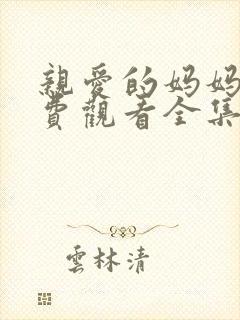 親愛的妈妈
費觀看全集
雲林清